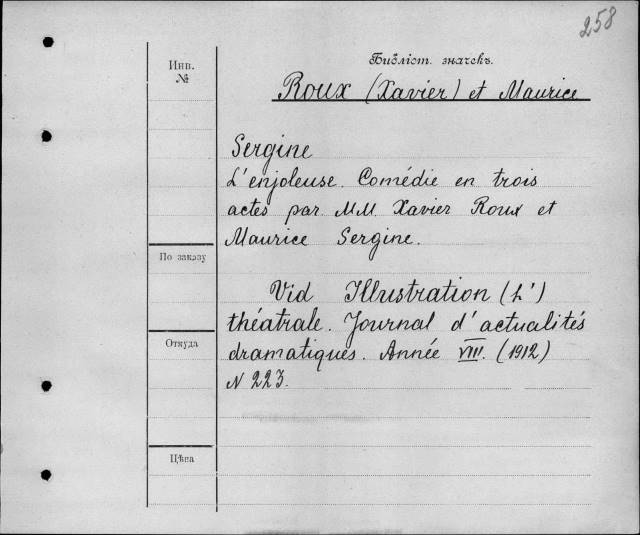 258
Библіот. значекъ.
Инв.
№
Roux (Xavier) et Maurice
Sergine
L'enjoleuse. Comédie en trois
actes par MM. Xavier Roux et
Maurice Sergine.
По заказу
Vid Illustration (L')
théatrale. Journal d'actualités
Откуда
dramatiques. Année VIII. (1912)
N 223.
Цѣна